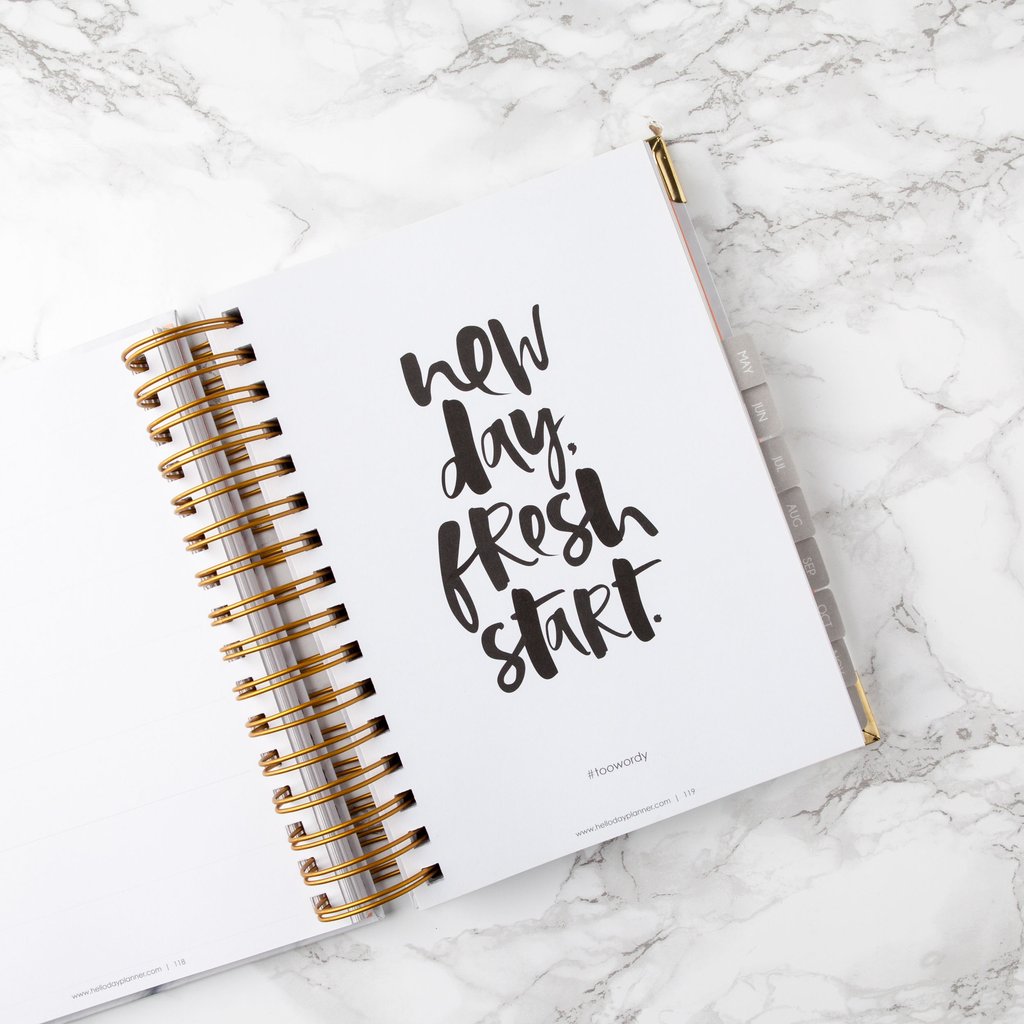 new
day.
fresh
start.
#toowordy
www.hellodayplanner.com | 119
www.hellodayplanner.com | 118
MAY
JUN
JUL
AUG
SEP
OCT